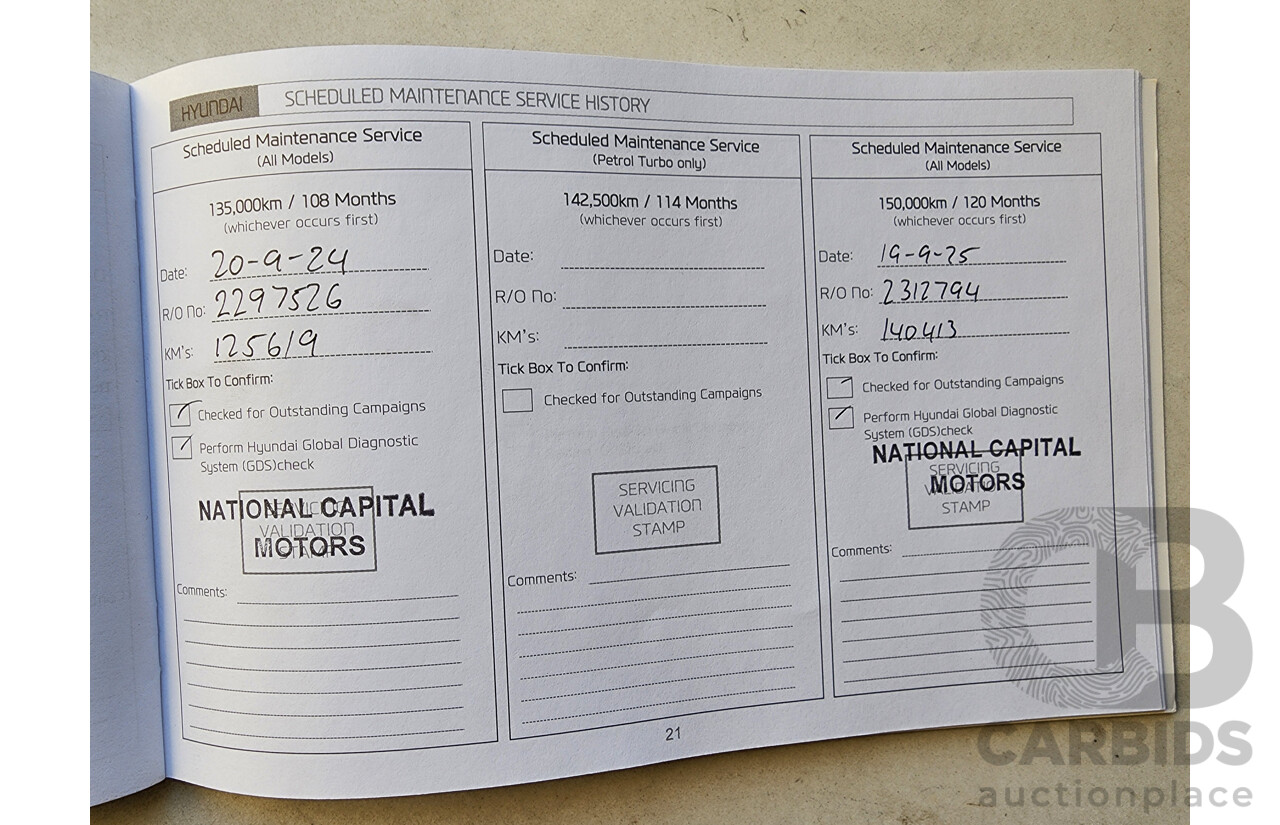 HYUNDAI SCHEDULED MAINTENANCE SERVICE HISTORY
Scheduled Maintenance Service
(All Models)
135,000km / 108 Months
(whichever occurs first)
Date: 20-9-24
R/O No: 2297526
KM's: 125619
Tick Box To Confirm:
Checked for Outstanding Campaigns
Perform Hyundai Global Diagnostic
System (GDS)check
SERVICING
VALIDATION
STAMP
NATIONAL CAPITAL
MOTORS
Comments:
Scheduled Maintenance Service
(Petrol Turbo only)
142,500km / 114 Months
(whichever occurs first)
Date:
R/O No:
KM's:
Tick Box To Confirm:
Checked for Outstanding Campaigns
SERVICING
VALIDATION
STAMP
Comments:
Scheduled Maintenance Service
(All Models)
150,000km / 120 Months
(whichever occurs first)
Date: 19-9-25
R/O No: 2312794
KM's: 140413
Tick Box To Confirm:
Checked for Outstanding Campaigns
Perform Hyundai Global Diagnostic
System (GDS)check
NATIONAL CAPITAL
MOTORS
SERVICING
VALIDATION
STAMP
Comments:
21
CB
CARBIDS
auctionplace